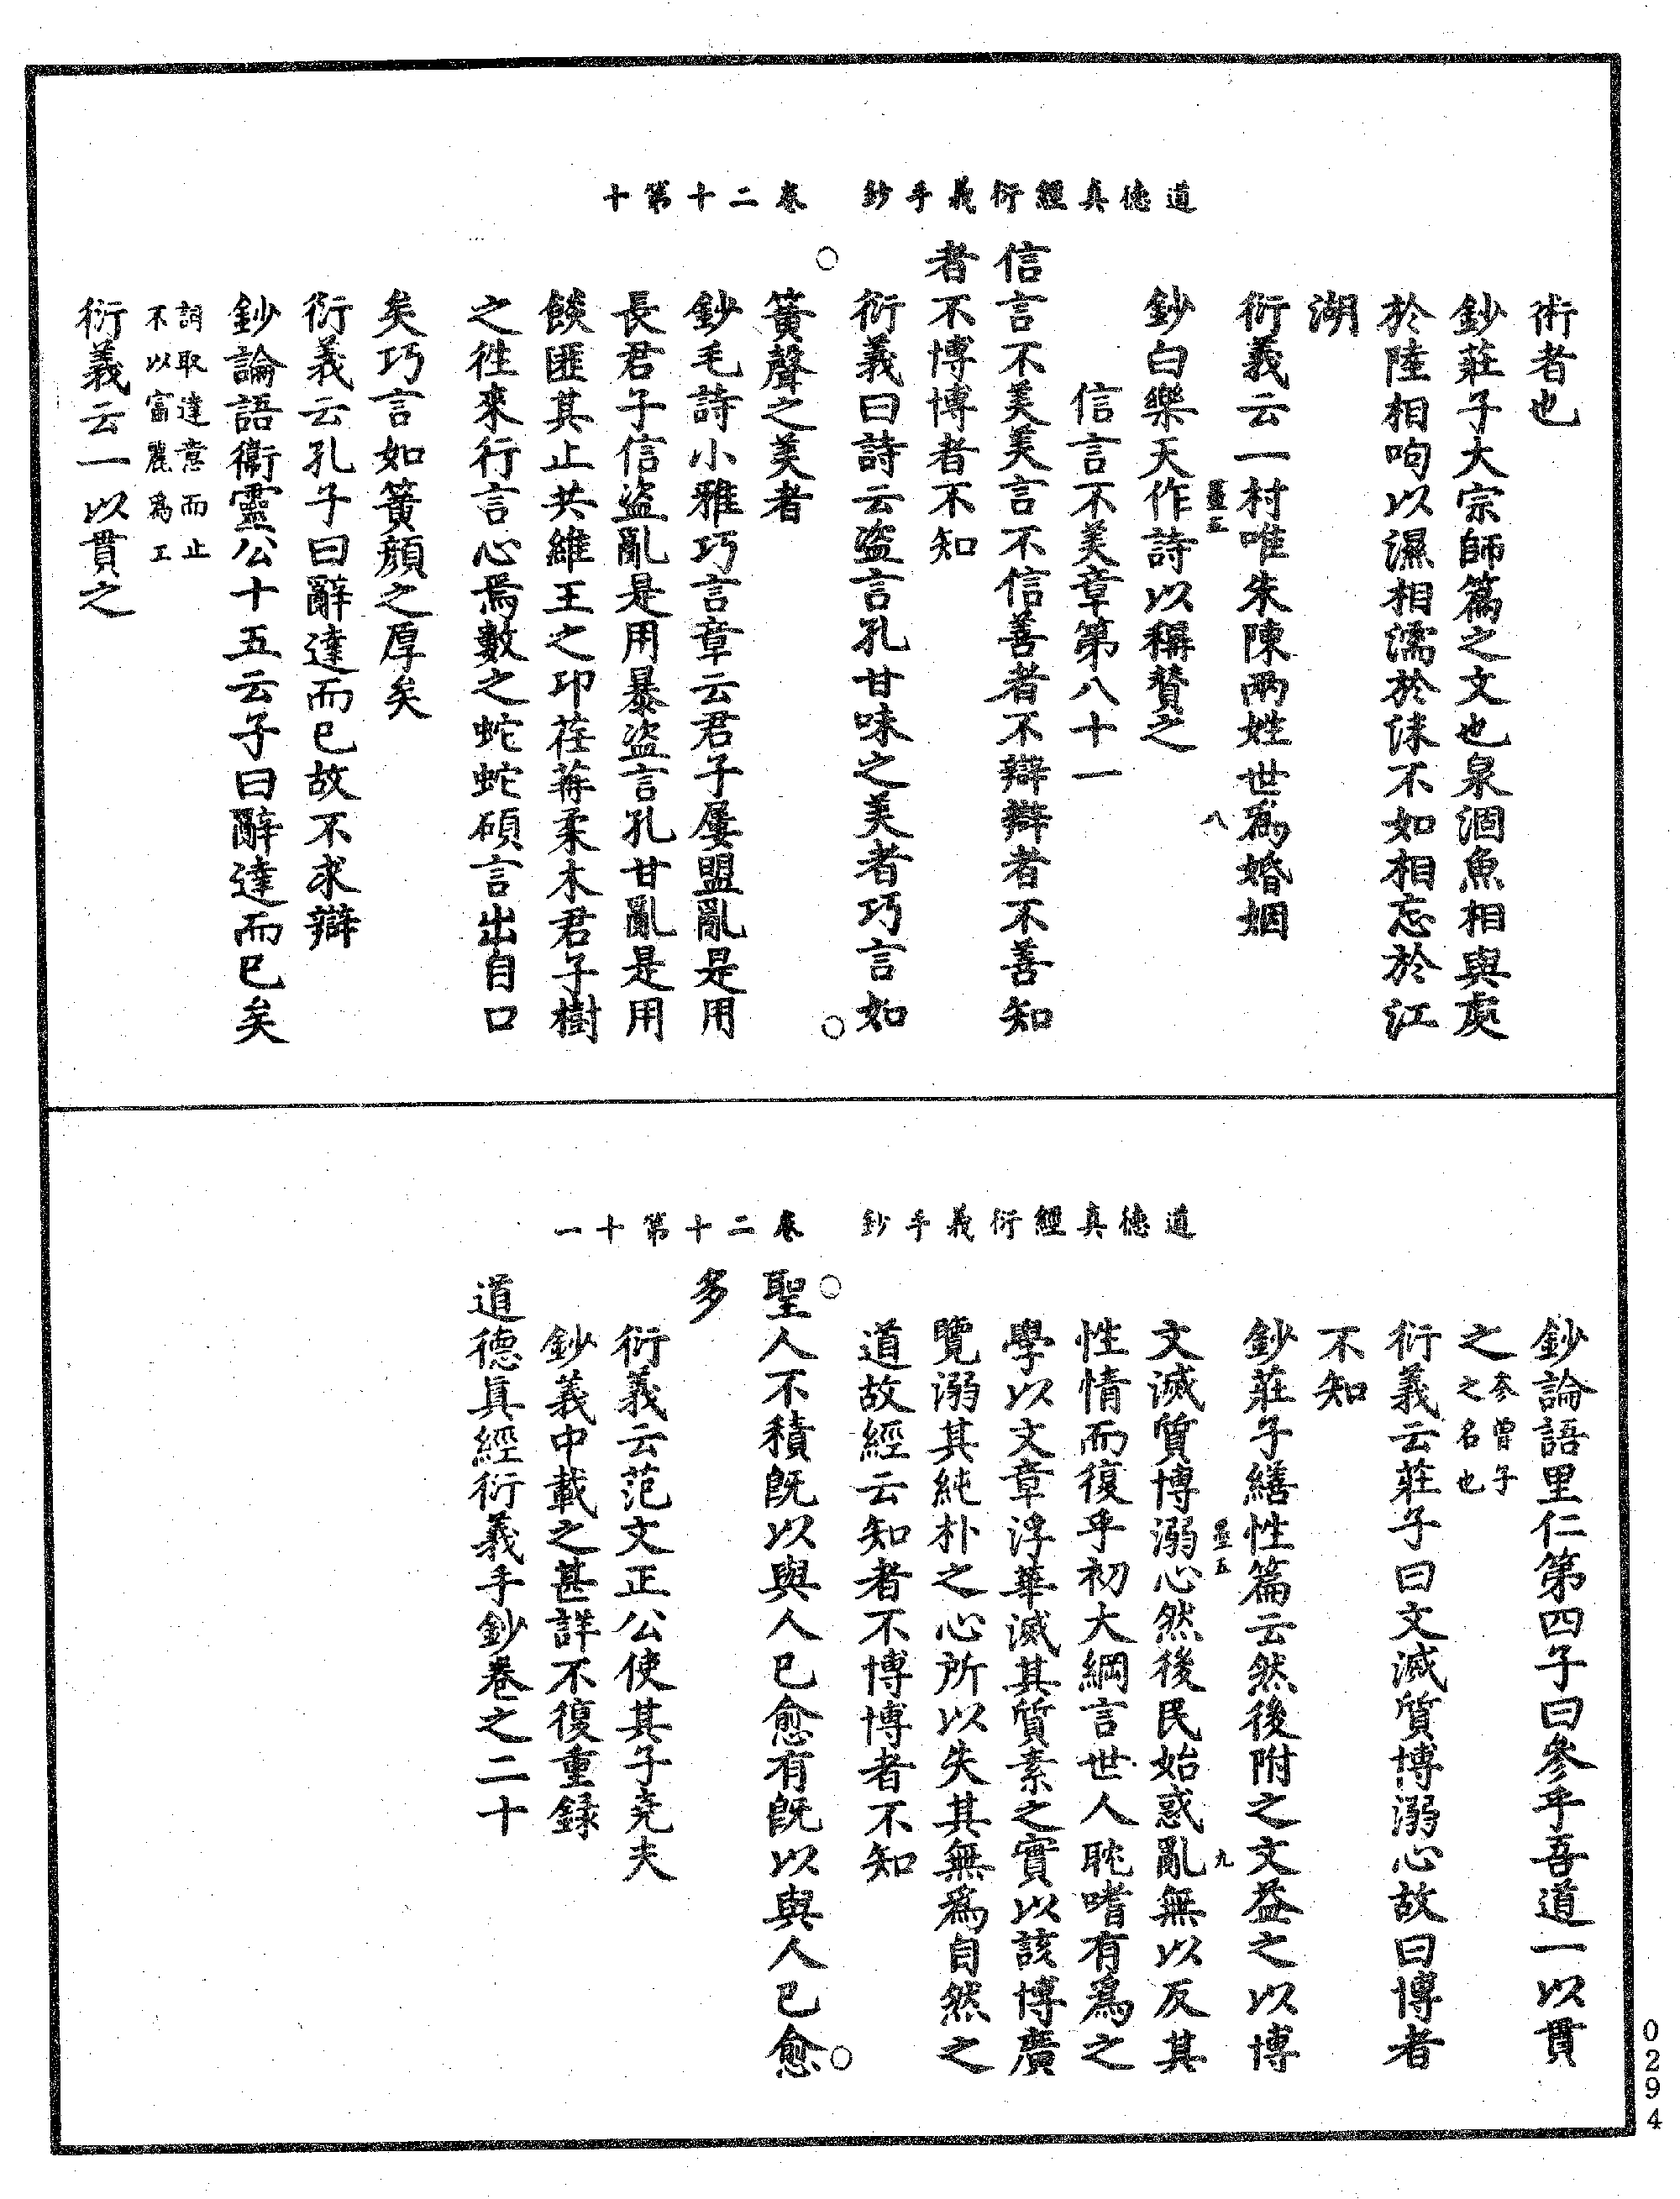 道德真經衍義手鈔　卷二十第十
術者也
鈔莊子大宗師篇之文也泉涸魚相與處
於陸相呴以濕相濡於沫不如相忘於江
湖
衍義云一村唯朱陳兩姓世爲婚姻
八
鈔白樂天作詩以稱贊之
信言不美章第八十一
信言不美美言不信善者不辯辯者不善知
者不博博者不知
衍義曰詩云盜言孔甘味之美者巧言如
簧聲之美者
鈔毛詩小雅巧言章云君子屢盟亂是用
長君子信盜亂是用暴盜言孔甘亂是用
餤匪其止共維王之卭荏苒柔木君子樹
之徃來行言心焉數之蛇蛇碩言出自口
矣巧言如簧顏之厚矣
衍義云孔子曰辭達而已故不求辯
鈔論語衞靈公十五云子曰辭達而已矣
詞取達意而止
不以富麗爲工
衍義云一以貫之
道德真經衍義手鈔　卷二十第十一
鈔論語里仁第四子曰參乎吾道一以貫
之
參曾子
之名也
衍義云莊子曰文滅質博溺心故曰博者
不知
鈔莊子繕性篇云然後附之文益之以博
九
文滅質博溺心然後民始惑亂無以反其
性情而復乎初大綱言世人耽嗜有爲之
學以文章浮華滅其質素之實以該博廣
覽溺其純朴之心所以失其無爲自然之
道故經云知者不博博者不知
聖人不積旣以與人已愈有旣以與人已愈
多
衍義云范文正公使其子堯夫
鈔義中載之甚詳不復重錄
道德眞經衍義手鈔卷之二十
0294